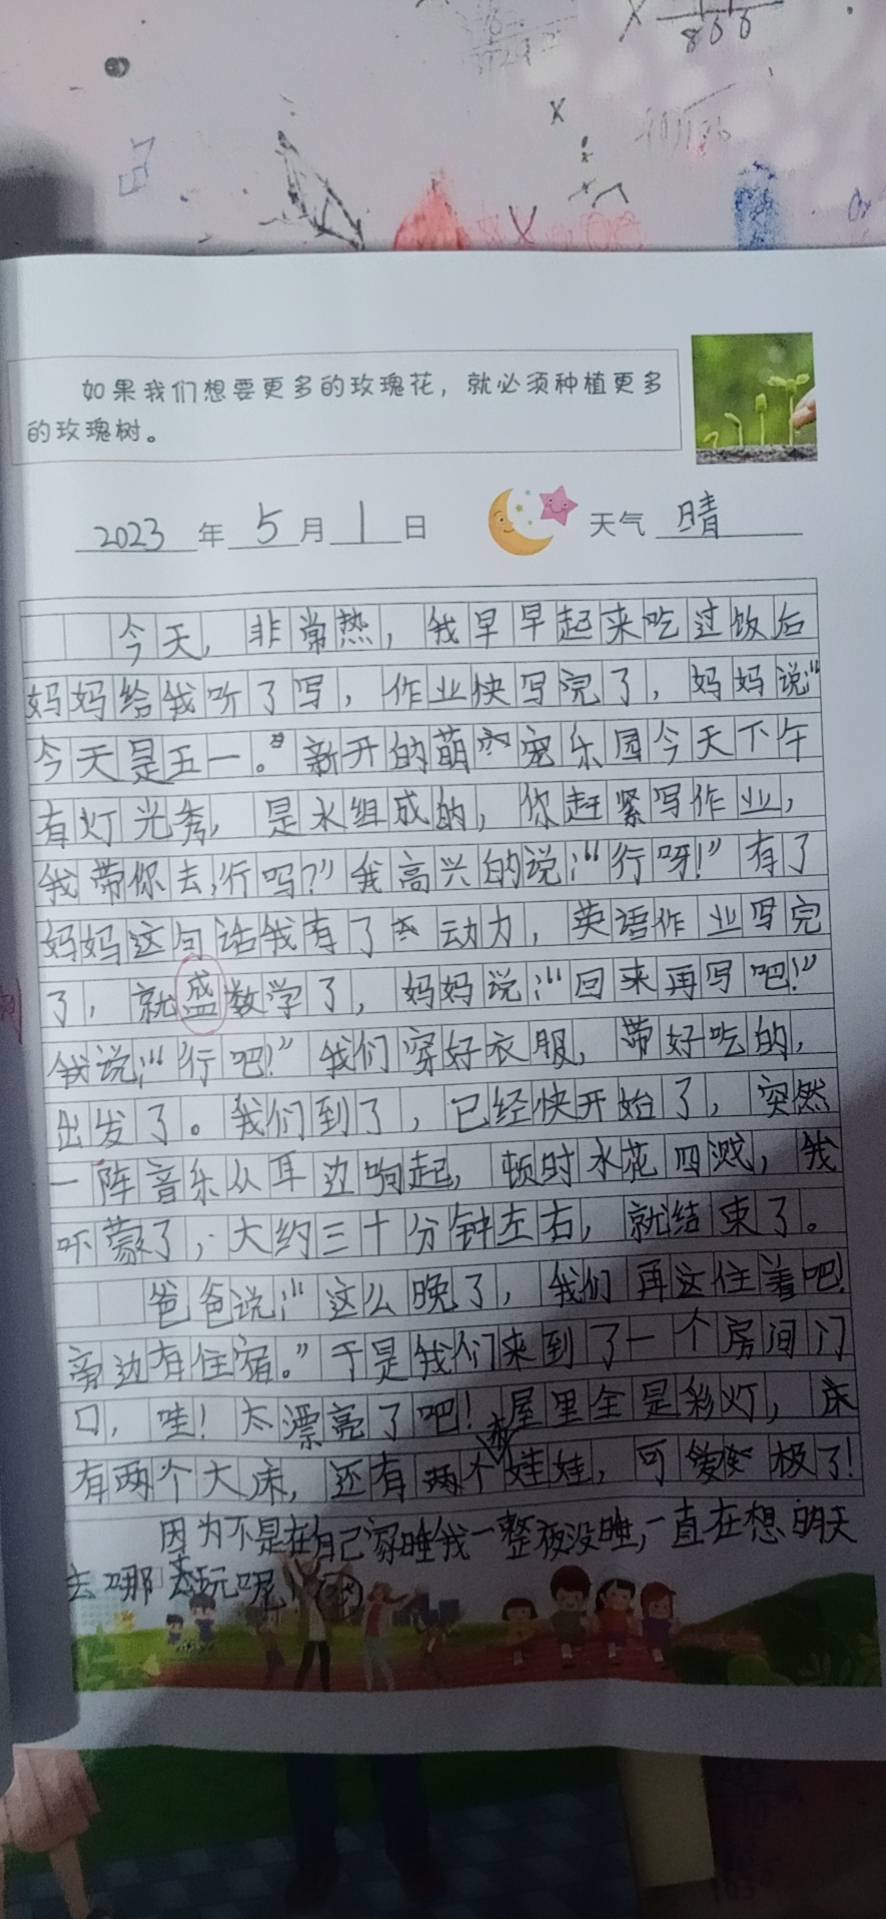 如果我们想要更多的玫瑰花，就必须种植更多
的玫瑰树。
2023年5月1日 天气 晴
今天，非常热，我早早起来吃过饭后
妈妈给我听了写，作业快写完了，妈妈说“
今天是五一。新开的萌宠乐园今天下午
有灯光秀，是水组成的，你赶紧写作业，
我带你去，行吗？”我高兴的说；“行呀！”有了
妈妈这句话我有了动力，英语作业写完
了，就盛数学了，妈妈说；“回来再写吧！”
我说；“行吧！”我们穿好衣服，带好吃的，
出发了。我们到了，已经快开始了，突然
一阵音乐从耳边响起，顿时水花四溅，我
吓蒙了，大约三十分钟左右，就结束了。
爸爸说；“这么晚了，我们再这住着吧！
旁边有住宿。”于是我们来到了一个房间门
口，哇！太漂亮了吧！屋里全是彩灯，床
有两个大床，还有两个布娃娃，可爱极了！
因为不是在自己家睡我一整夜没睡，一直在想明天
去哪去玩呢！